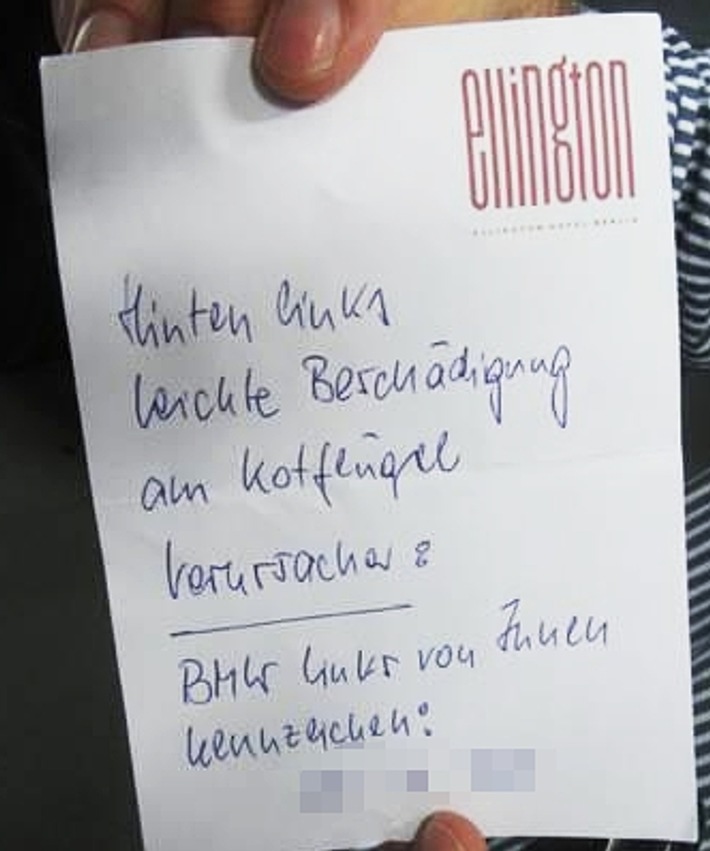 ellington
ELLINGTON HOTEL BERLIN
Hinten links
leichte Beschädigung
am Kotflügel
Verursacher:
BMW links von Ihnen
kennzeichen: